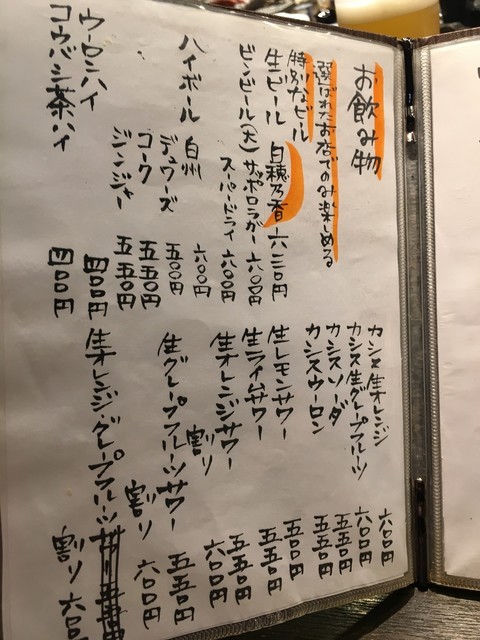 お飲み物
選ばれたお店でのみ楽しめる
特別なビール
生ビール 白穂乃香 六三〇円
ビンビール(大) サッポロラガー 六〇〇円
スーパードライ 六〇〇円
ハイボール 白州 六〇〇円
デュワーズ 五〇〇円
コーク 五五〇円
ジンジャー 五五〇円
ウーロンハイ 四〇〇円
コウバシ茶ハイ 四〇〇円
カシス生オレンジ 六〇〇円
カシス生グレープフルーツ 六〇〇円
カシスソーダ 五五〇円
カシスウーロン 五五〇円
生レモンサワー 五五〇円
生ライムサワー 五五〇円
生オレンジサワー 五五〇円
割り 六〇〇円
生グレープフルーツサワー 五五〇円
割り 六〇〇円
生オレンジ・グレープフルーツ
割り 六〇〇円